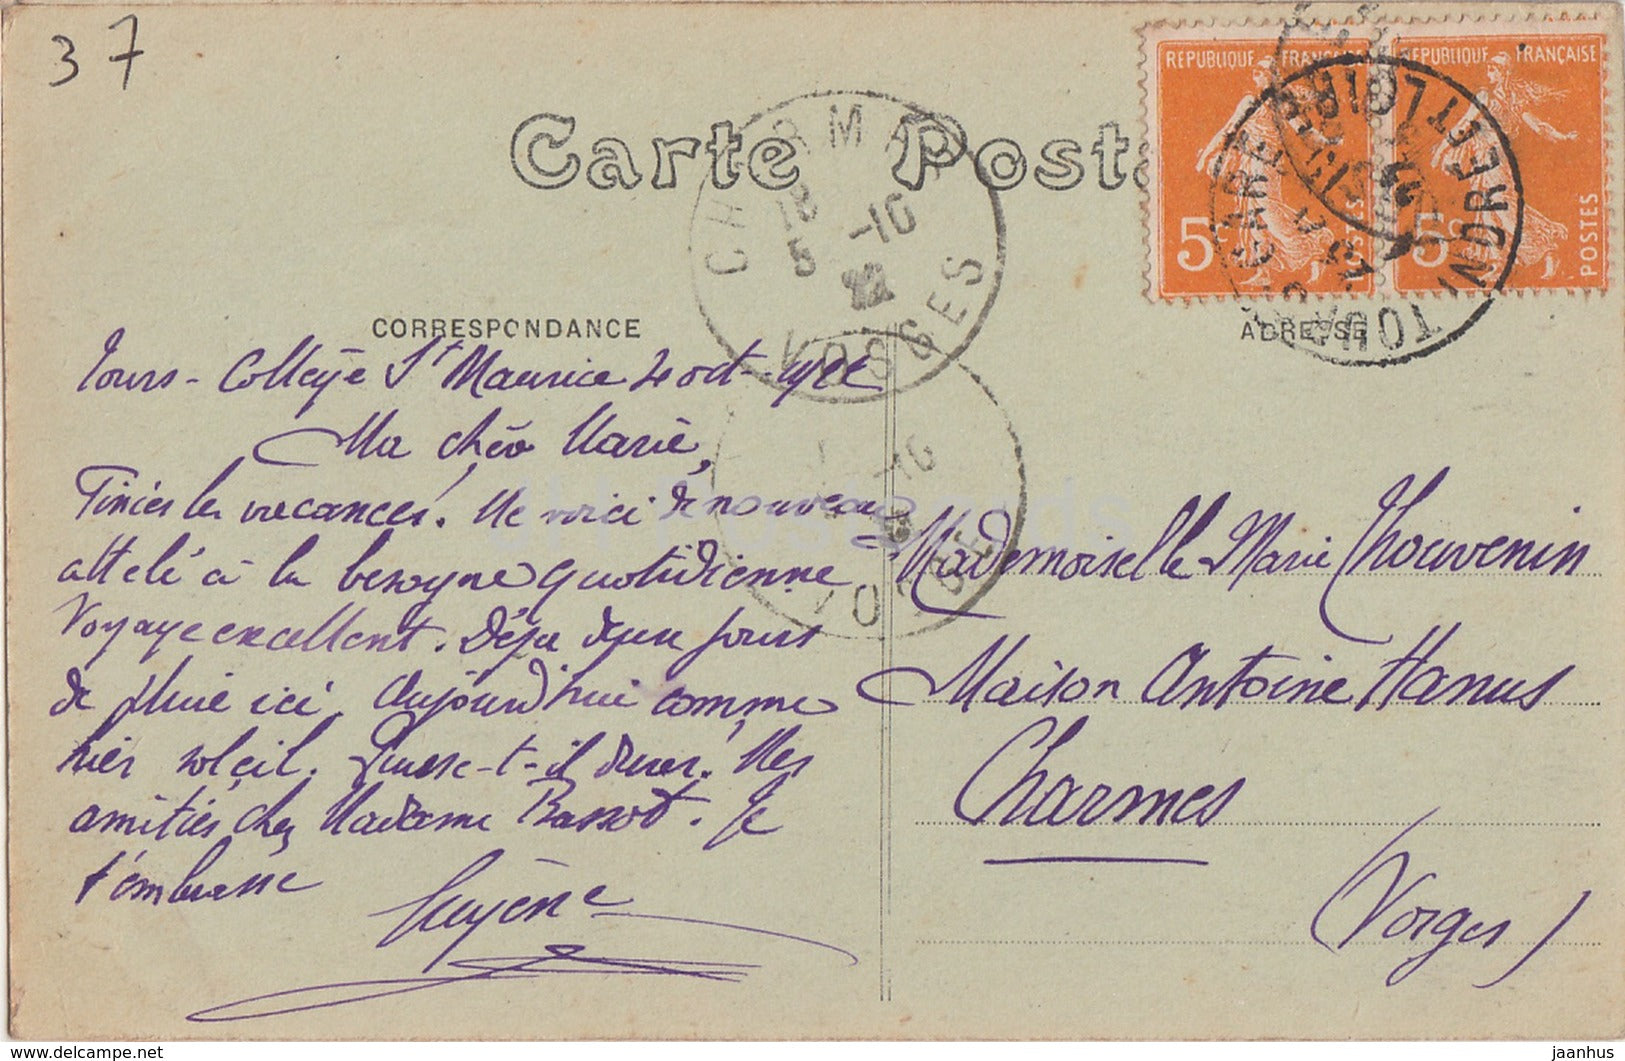 37
Carte Posta
CORRESPONDANCE
ADRESSE
REPUBLIQUE FRANÇAISE
5c POSTES
REPUBLIQUE FRANÇAISE
5c POSTES
TOURS GARE
INDRE ET LOIRE
CHARMES
18
5 -10
22
VOSGES
-10
VOSGES
Tours - Collège St Maurice 4 oct. 1922
Ma chère Marie,
Finies les vacances. Me voici de nouveau
attelé à la besogne quotidienne
Voyage excellent. Déjà deux jours
de pluie ici. Aujourd'hui comme
hier soleil. Puisse-t-il durer. Mes
amitiés chez Madame Bassot. Je
t'embrasse
Eugène
Mademoiselle Marie Thouvenin
Maison Antoine Hanus
Charmes
(Vosges)
jH Postcards
www.delcampe.net
jaanhus